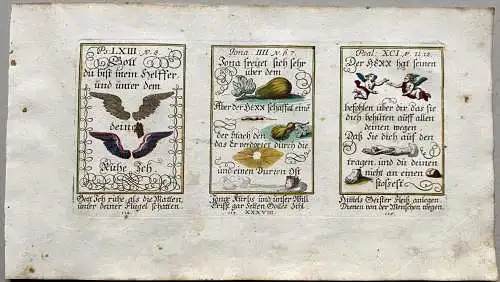 Ps. LXIII v. 8.
Gott
du bist mein Helffer
und unter dem
deiner
Ruhe Ich
Gott Ich ruhe als die Matten,
unter deiner Flügel schatten.
Jona IIII v. 6. 7.
Jona freuet sich sehr
über dem
Aber der HERR schaffat eine
der stach den
das Er verdorret durch die
und einen Dürren Ost
XXXVIII
Psal. XCI v. 11. 12.
Der HERR hat seinen
befohlen über dir das sie
dich behüten auff allen
deinen wegen
Daß Sie dich auf den
tragen und du deinen
nicht an einen
stossest
Himels Geister Fleiß anlegen
Dienen von der Menschen wegen.